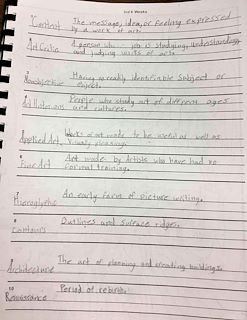 Content The message, idea, or feeling expressed
by a work of art.
Art Critic A person who job is studying, understanding,
and judging works of art.
Nonobjective Having no readily identifiable subject or
object.
Art Historians People who study art of different ages
and cultures.
Applied Art Works of art made to be useful as well as
visually pleasing.
Fine Art Art made by Artists who have had no
formal training.
Hieroglyphic An early form of picture writing.
8
Contours Outlines and surface ridges.
9
Architecture The art of planning and creating buildings.
10
Renaissance Period of rebirth.